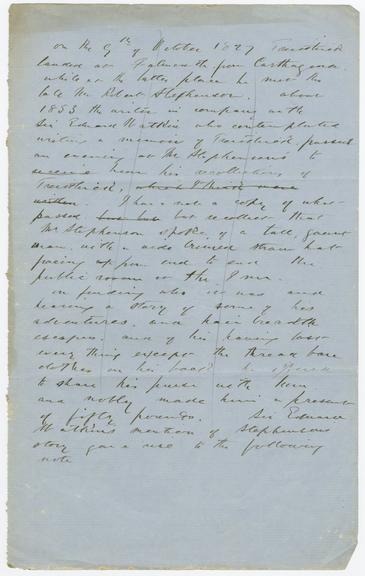 on the 9th of October 1827 Trevithick
landed at Falmouth from Carthagena.
while at the latter place he met the
late Mr Robt Stephenson. about
1853 the writer in company with
Sir Edward Watkin who contemplated
writing a memoir of Trevithick, passed
an evening at Mr Stephenson's to
hear his recollections of
Trevithick, which I think were
written. I have not a copy of what
passed but recollect that
Mr Stephenson spoke of a tall, gaunt
man, with a wide brimed straw hat
pacing from end to end the
public room at the Inn.
on finding who it was and
hearing a story of some of his
adventures, and hair breadth
escapes, and of his having lost
every thing except the thread bare
clothes on his back he offered
to share his purse with him
and nobly made him a present
of fifty pounds. Sir Edward
Watkin's mention of Stephenson's
story gave rise to the following
note